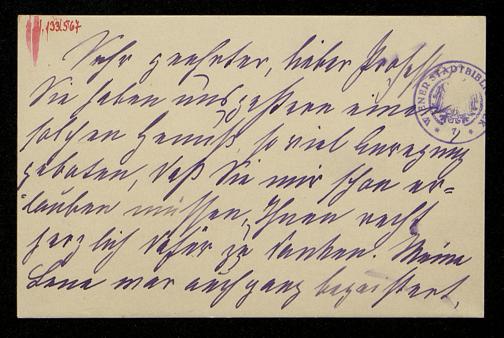 I.133.567
Sehr geehrter, lieber Professor
Sie haben uns gestern einen
solchen Genuß, so viel Anregung
geboten, daß Sie mir schon er=
lauben müssen, Ihnen recht
herzlich dafür zu danken. Meine
Lene war auch ganz begeistert,
WIENER STADTBIBLIOTHEK